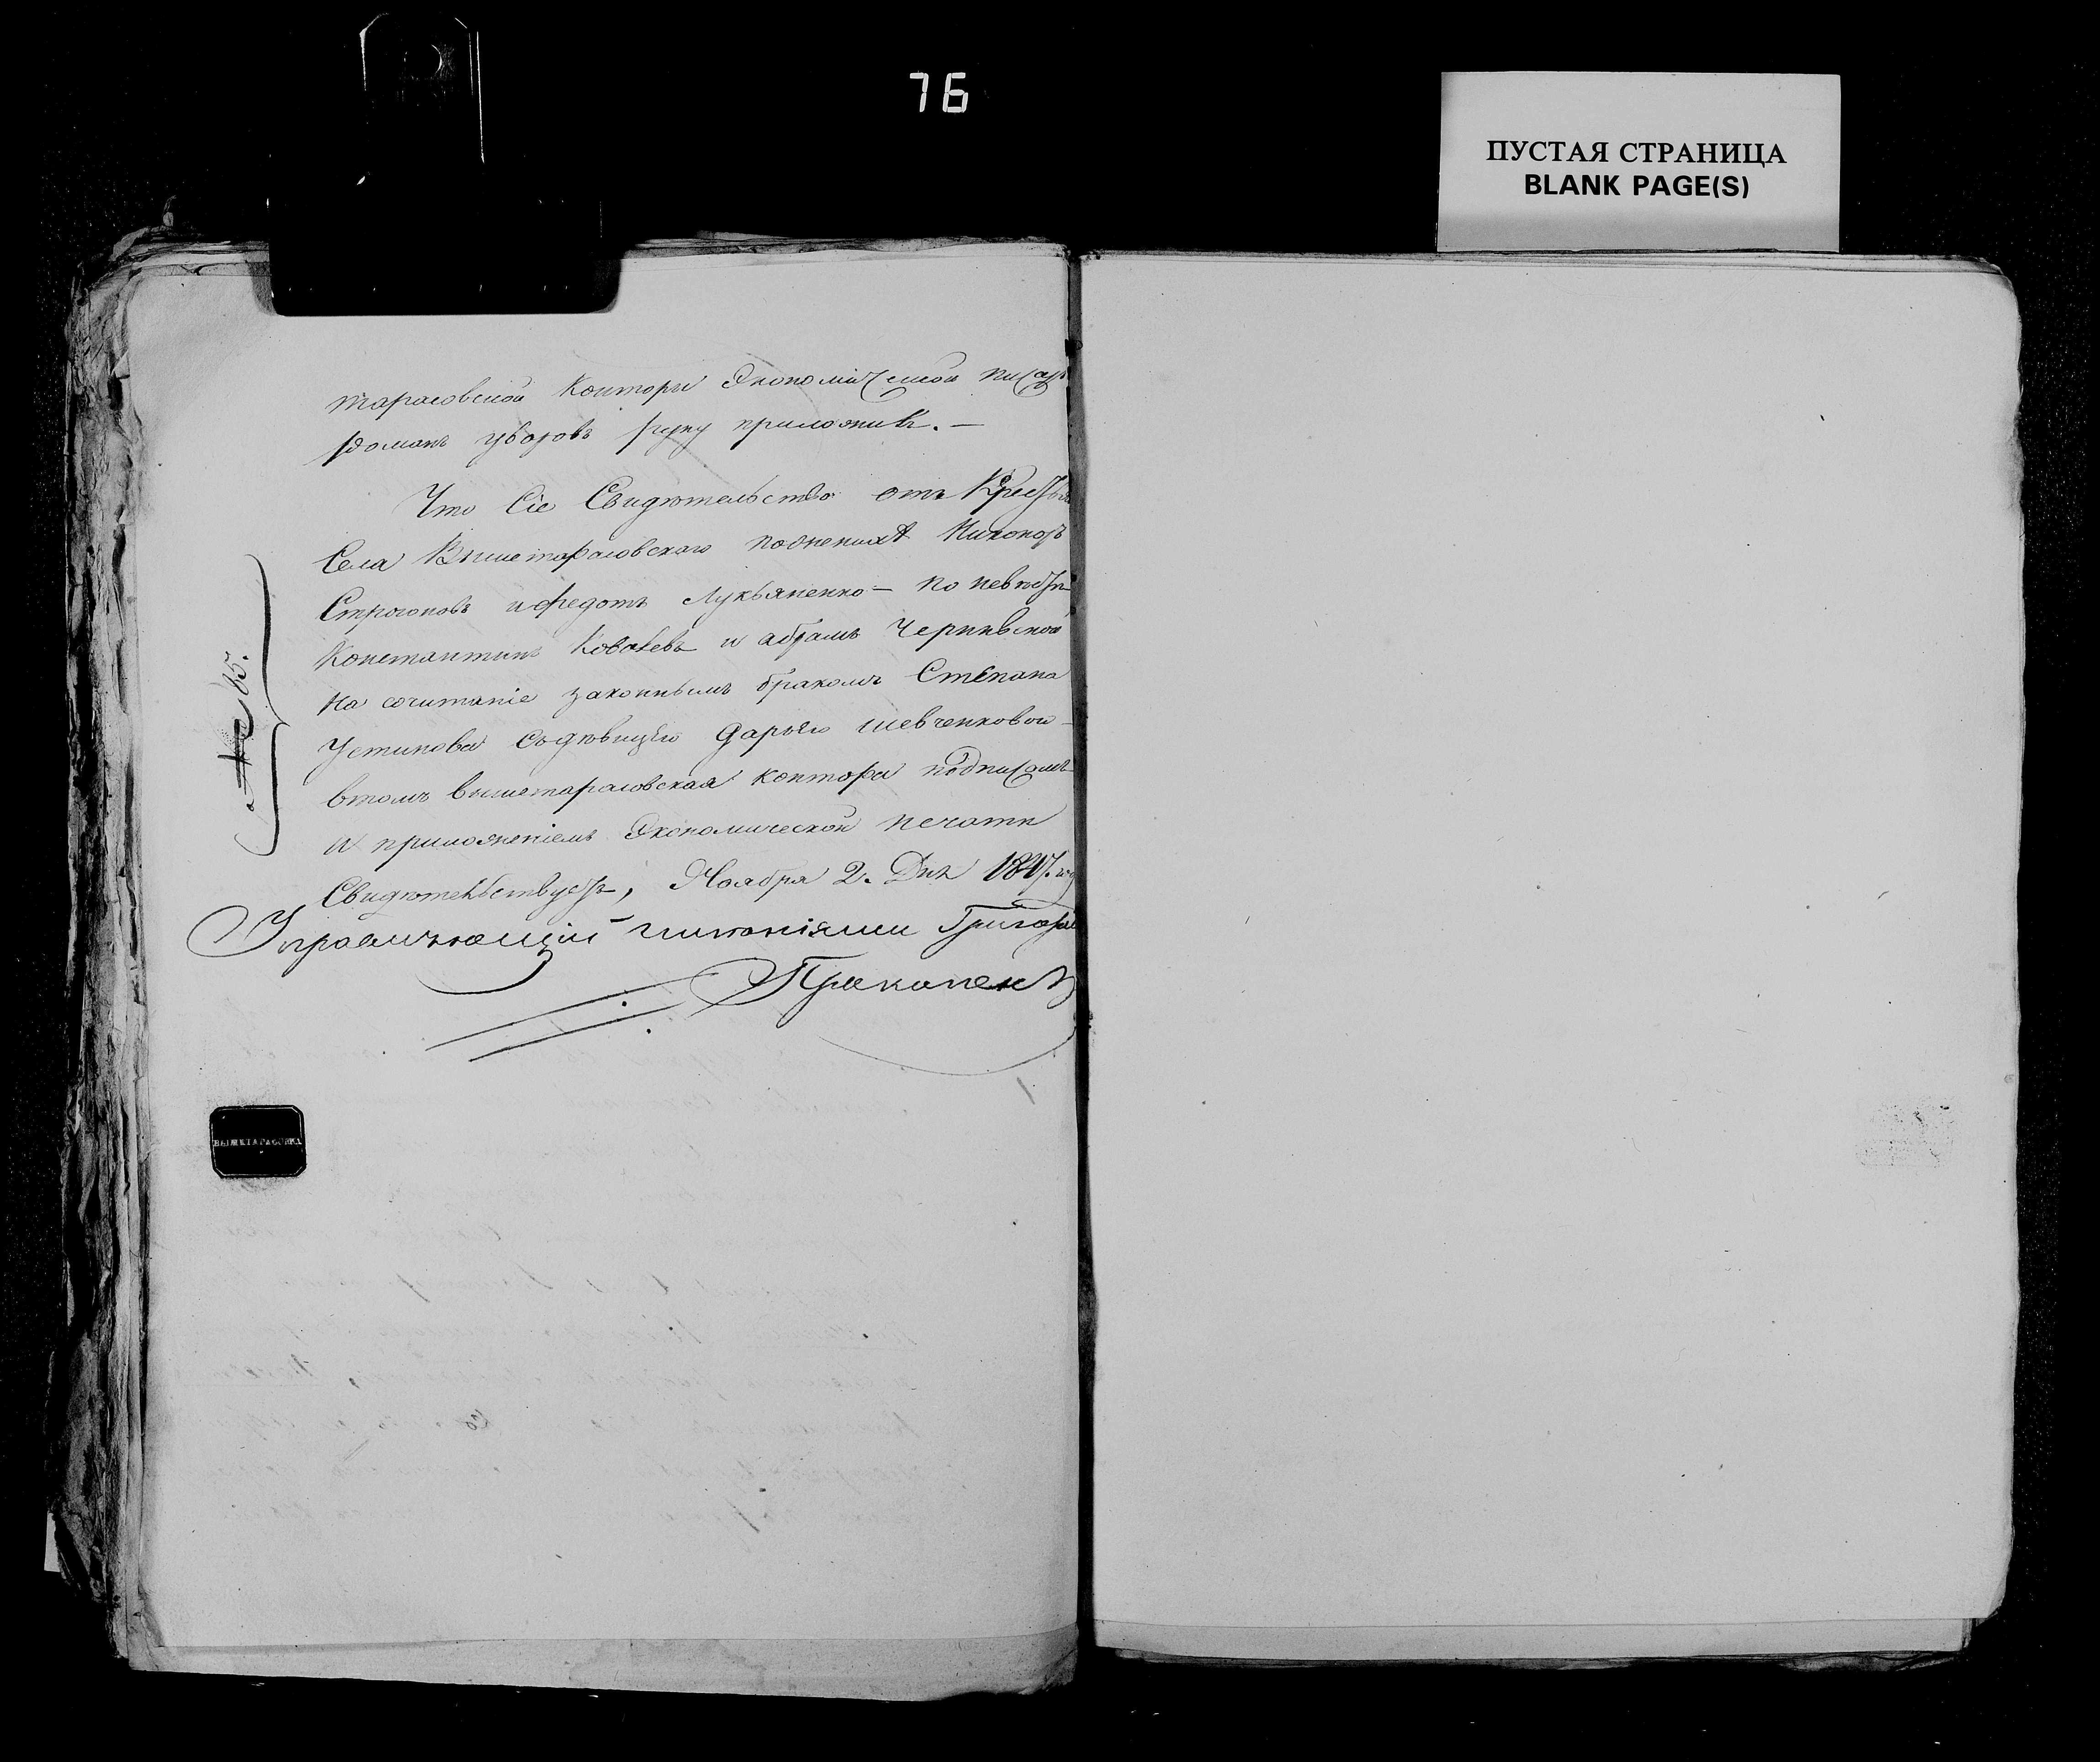 76
ПУСТАЯ СТРАНИЦА
BLANK PAGE(S)
тарасовской Конторы Экономической писарь
романъ уваровъ руку приложилъ. —
Что Сіе Свидѣтельство отъ Крестья
Села Вышетарасовскаго Никоноръ
Строгоновъ ифедотъ Лукьяненко —
Константинъ Ковалевъ и абрамъ
На сочитаніе законнымъ бракомъ Степана
Устинова съдѣвицѣю дарьею шевченковои
втомъ вышетарасовская контора подписомъ
и приложеніемъ Экономической печати
Свидѣтельствуетъ, Ноября 2. Дня
Управляющій имѣніями Григорій
ВЫШЕТАРАСОВКА